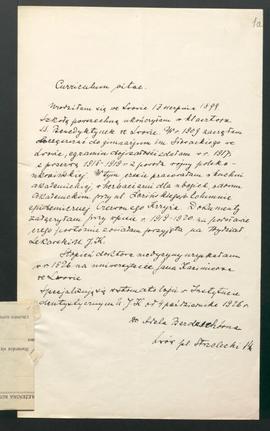 1a
Curriculum vitae.
Urodziłam się we Lwowie 17 sierpnia 1899.
Szkołę powszechną ukończyłam u klasztora
SS. Benedyktynek we Lwowie. W r. 1909 zaczęłam
uczęszczać do gimnazjum im. Słowackiego we
Lwowie, egzamin dojrzałości zdałam w r. 1917.
z przerwą 1918-1919 z powodu wojny polsko-
ukraińskiej. W tym czasie pracowałam w kuchni
akademickiej, herbaciarni dla w domu
akademickim przy ul.
epidemicznej Czerwonego Krzyża. Dokumenty
przy 1919-1920. na podstawie
czego zostałam przyjęta na Wydział
Lekarski U. J. K.
Stopień doktora medycyny uzyskałam
w r. 1926 na uniwersytecie Jana Kazimierza
we Lwowie
Specjalizuję się w stomatologii w Instytucie
dentystycznym U. J. K. od 4 października 1926 r.
Dr. Adela
Lwów pl. Strzelecki